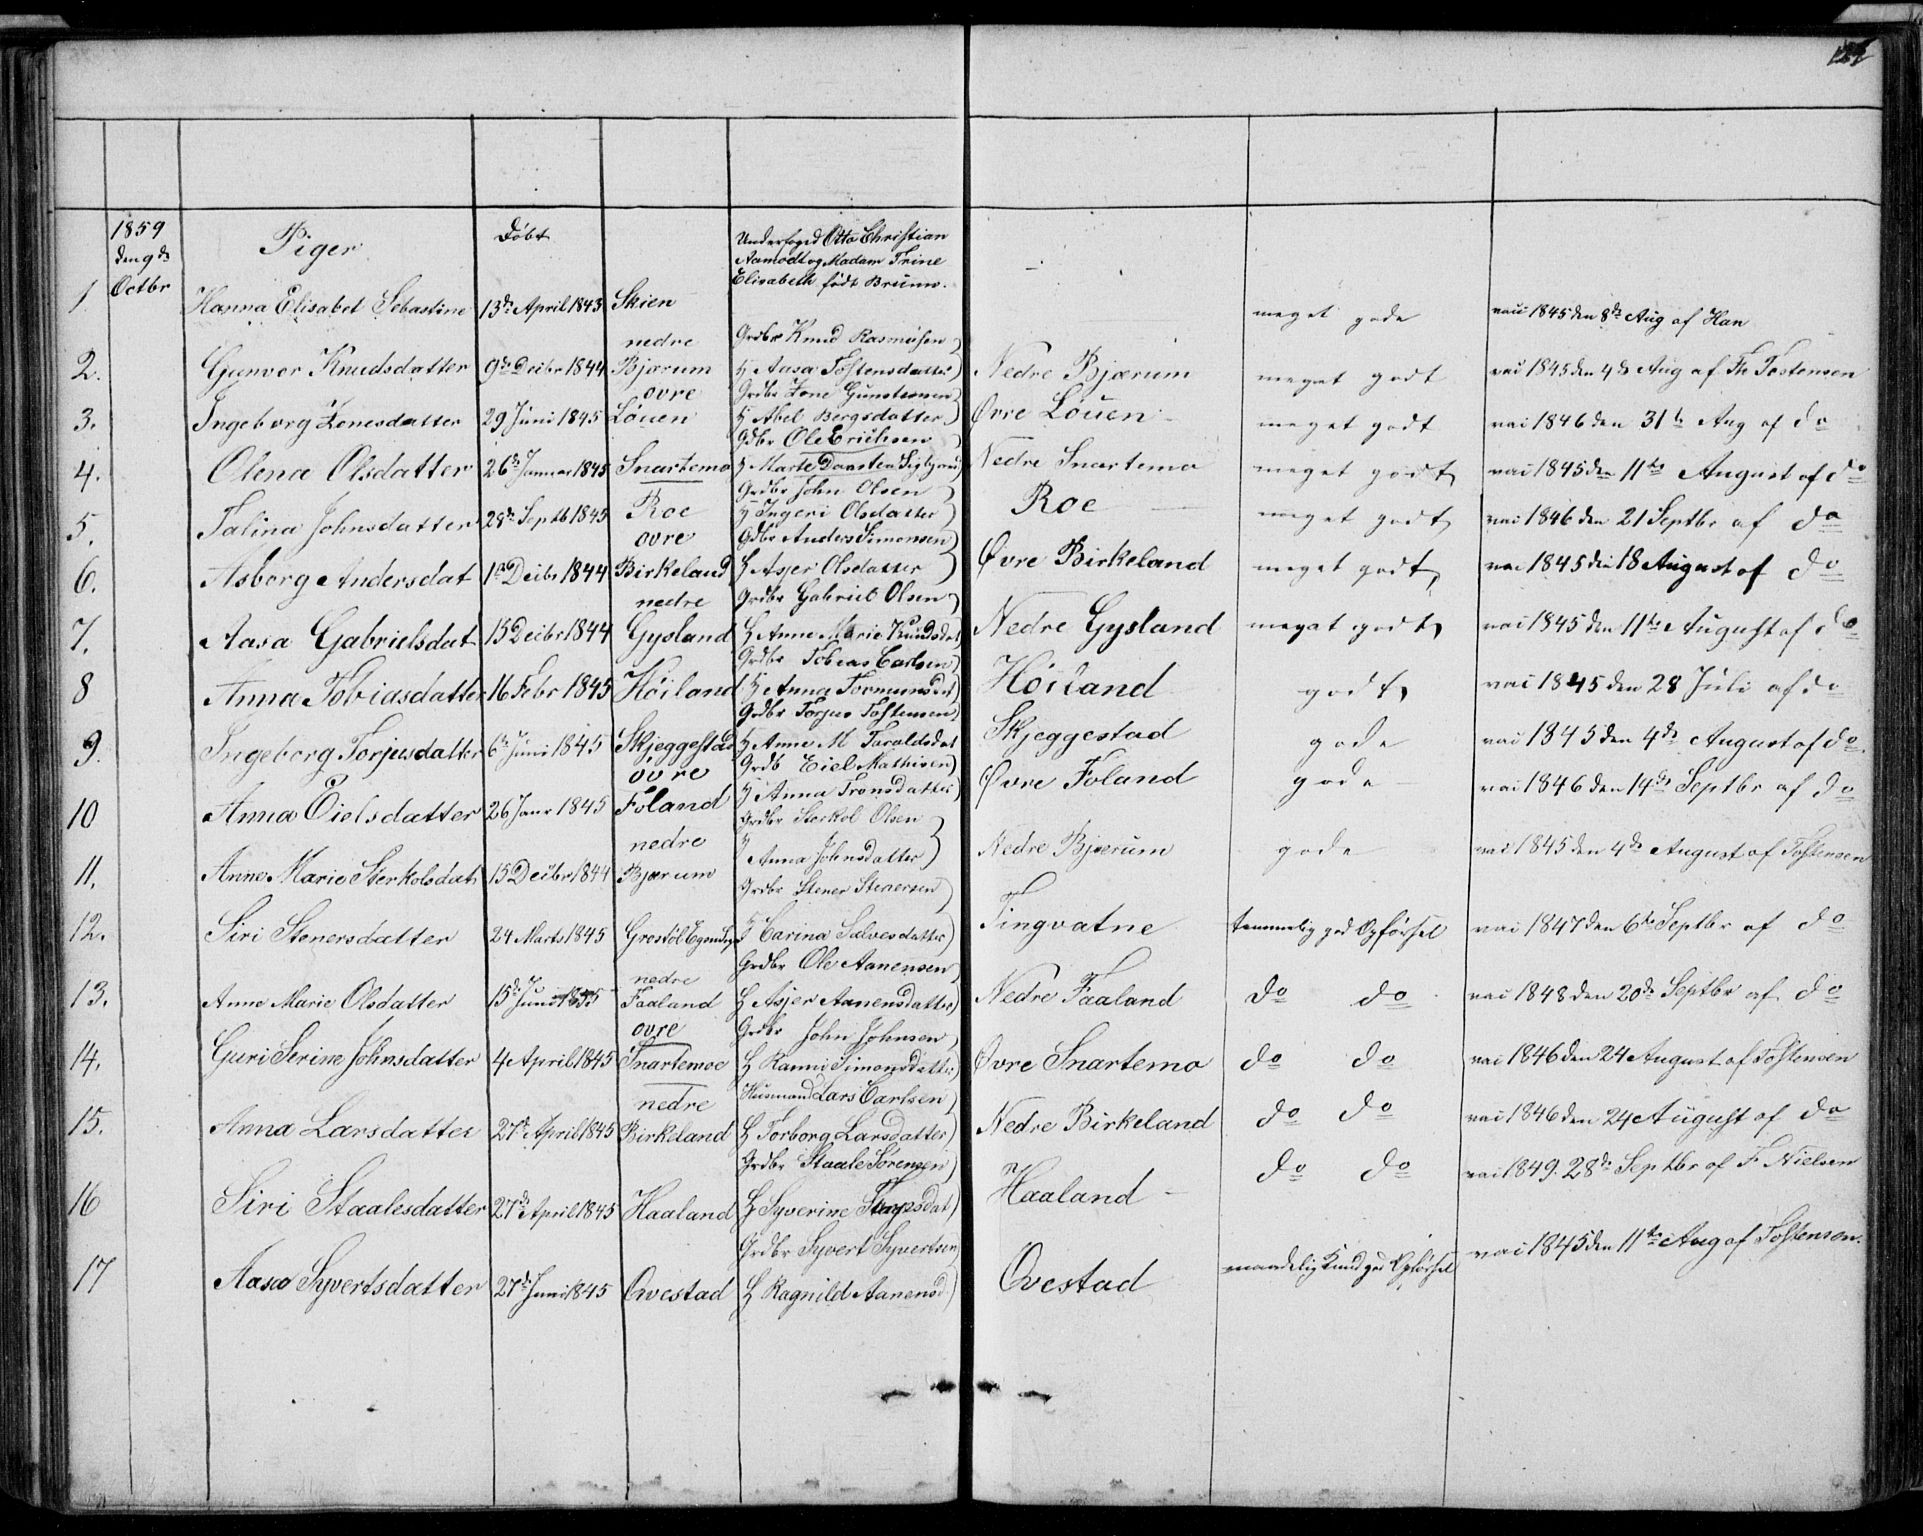 1859
den 9de
Octbr
Piger
Døbt
Underfoged Otto Christian
Aamodt og Madam Trine
Elisabeth født Bruun.
1 Hanna Elisabet Sebastine 13de April 1843 Skien meget gode vac 1845 den 8de Aug af Han
nedre Grdbr Knud Rasmusen
2. Gunvor Knudsdatter 9de Decbr 1844 Bjærum H Aasa Tostensdatter Nedre Bjærum meget godt vac 1845 den 4de Aug af Th Tostensen
øvre Grdbr Zone Gundersen
3. Ingeborg Zonesdatter 29 Juni 1845 Løuen H Abel Bergsdatter Øvre Løuen meget godt vac 1846 den 31te Aug af do
Gdbr Ole Erichsen
4. Olena Olsdatter 26de Januar 1845 Snartemo H Marte Nedre Snartemo meget godt vac 1845 den 11te August af do
Grdbr John Olsen
5. Talina Johnsdatter 28de Septb 1845 Roe H Ingeri Olsdatter Roe meget godt vac 1846 den 21 Septbr af do
øvre Gdbr Anders Simonsen
6. Asborg Andersdat 1ste Decbr 1844 Birkeland H Asjer Olsdatter Øvre Birkeland meget godt vac 1845 den 18 August af do
nedre Grdbr Gabriel Olsen
7. Aasa Gabrielsdat 15 Decbr 1844 Gysland H Anne Marie Knudsdat Nedre Gysland meget godt vac 1845 den 11te August af do
Grdbr Tobias Carlsen
8 Anna Tobiasdatter 16 Febr 1845 Høiland H Anna Tormunsdat Høiland godt vac 1845 den 28 Juli af do
Grdbr Torjus Tostensen
9. Ingeborg Torjusdatter 6te Juni 1845 Skjeggestad H Anne M Taraldsdat Skjeggestad gode vac 1845 den 4de August af do
øvre Grdb Eiel Mathisen
10 Anna Eielsdatter 26 Janr 1845 Foland H Anna Tronsdatter Øvre Foland gode vac 1846 den 14de Septbr af do
nedre Grdbr Sterkol Olsen
11. Anne Marie Sterkolsdat 15 Decbr 1844 Bjærum H Anna Johnsdatter Nedre Bjærum gode vac 1845 den 4de August af Tostensen
Grdbr Stener Stenersen
12. Siri Stenersdatter 24 Marts 1845 Grostøl H Carina Salvesdatter Tingvatne temmelig god Opførsel vac 1847 den 6te Septbr af do
nedre Grdbr Ole Aanensen
13. Anne Marie Olsdatter 15de Juni 1845 Faaland H Asjer Aanensdatter Nedre Faaland do do vac 1848 den 20de Septbr af do
øvre Grdbr John Johnsen
14. Guri Serine Johnsdatter 4 April 1845 Snartemoe H Ranni Simonsdatter Øvre Snartemo do do vac 1846 den 24 August af Tostensen
nedre Husmand Lars Carlsen
15. Anna Larsdatter 27de April 1845 Birkeland H Torborg Larsdatter Nedre Birkeland do do vac 1846 den 24 August af do
Grdbr Staale Sørensen
16 Siri Staalesdatter 27de April 1845 Haaland H Syverine Haaland do do vac 1849. 28de Septbr af F. Nielsen
Grdbr Syvert Syvertsen
17 Aasa Syvertsdatter 27de Juni 1845 Ovestad H Ragnild Aanensd Ovestad maadelig Kund god Opførsel vac 1845 den 11te Aug af Tostensen.